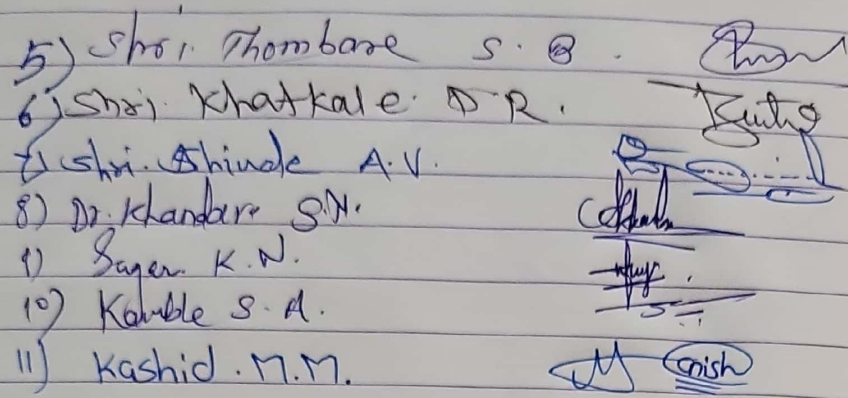 5) Shri. Thombare S. B.
6) Shri. Khatkale D R.
7) Shri. Shinde A.V.
8) Dr. Khandare S.N.
9) Sagar K.N.
10) Kamble S.A.
11) Kashid. M.M.